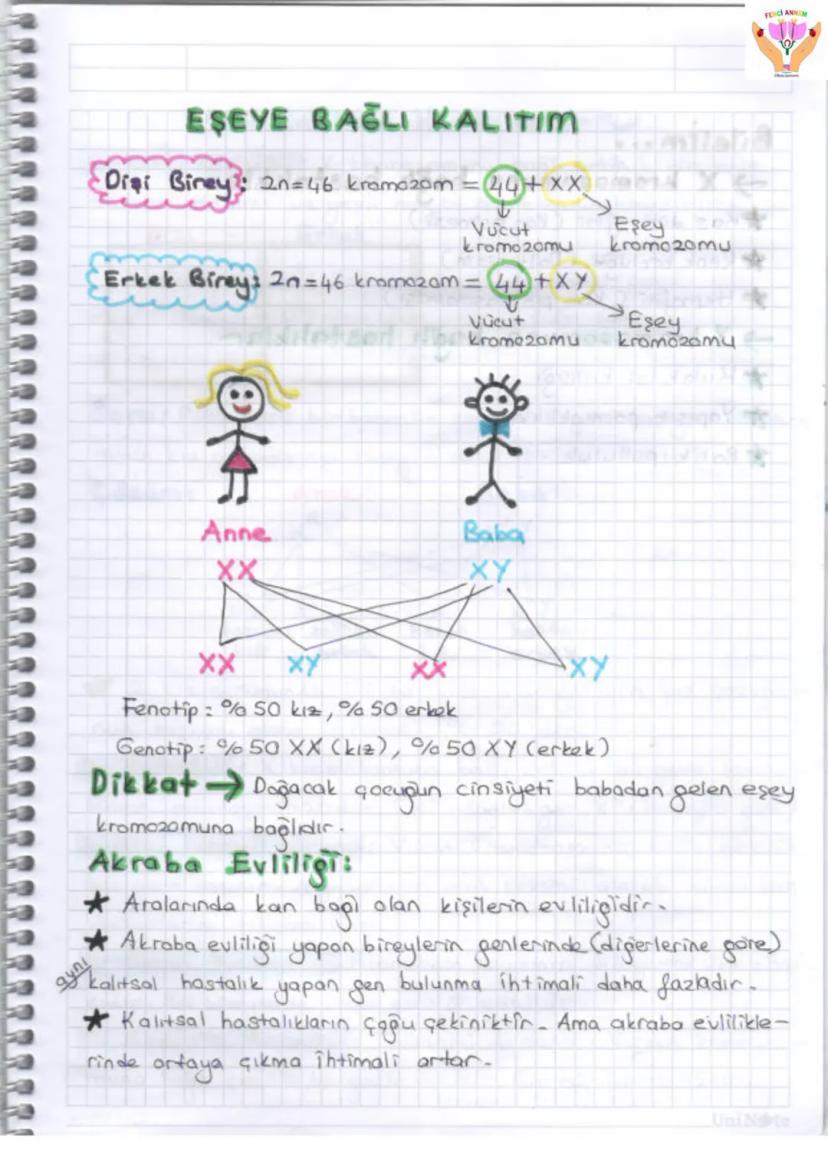 FENCİ ANNEM
EŞEYE BAĞLI KALITIM
Dişi Birey: 2n=46 kromozom = 44 + XX
Vücut kromozomu
Eşey kromozomu
Erkek Birey: 2n=46 kromozom = 44 + XY
Vücut kromozomu
Eşey kromozomu
Anne
Baba
XX
XY
XX
XY
XX
XY
Fenotip : %50 kız, %50 erkek
Genotip : %50 XX (kız), %50 XY (erkek)
Dikkat → Doğacak çocuğun cinsiyeti babadan gelen eşey
kromozomuna bağlıdır.
Akraba Evliliği:
★ Aralarında kan bağı olan kişilerin evliliğidir.
★ Akraba evliliği yapan bireylerin genlerinde (diğerlerine göre)
aynı kalıtsal hastalık yapan gen bulunma ihtimali daha fazladır.
★ Kalıtsal hastalıkların çoğu çekiniktir. Ama akraba evlilikle-
rinde ortaya çıkma ihtimali artar.
UniNote